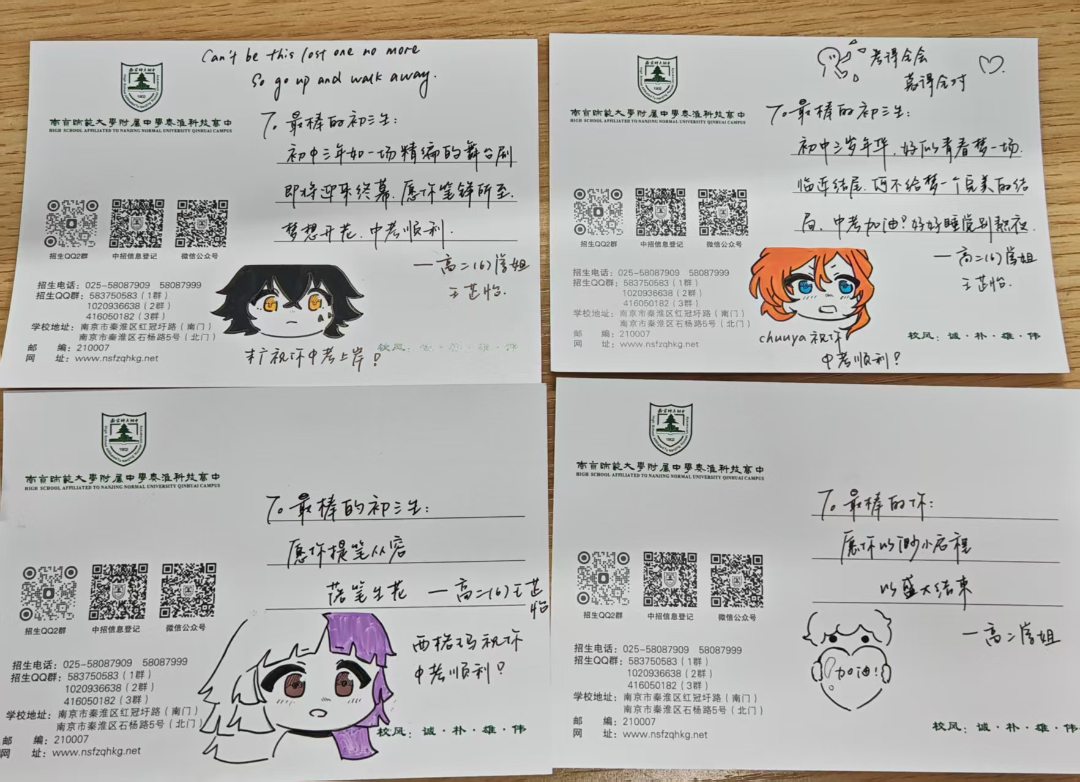 Can't be this lost one no more
So go up and walk away.
南京师范大學附属中學秦淮科技高中
HIGH SCHOOL AFFILIATED TO NANJING NORMAL UNIVERSITY QINHUAI CAMPUS
To 最棒的初三生:
初中三年如一场精编的舞台剧
即将迎来终幕.愿你笔锋所至.
梦想开花.中考顺利.
—高二(6)学姐
王芷怡.
招生QQ2群
中招信息登记
微信公众号
招生电话: 025-58087909 58087999
招生QQ群: 583750583（1群）
1020936638（2群）
416050182（3群）
学校地址: 南京市秦淮区红冠圩路（南门）
南京市秦淮区石杨路5号（北门）
邮 编: 210007
网 址: www.nsfzqhkg.net
祝你中考上岸!
校风: 诚·朴·雄·伟
考得全会
蒙得全对
南京师范大學附属中學秦淮科技高中
HIGH SCHOOL AFFILIATED TO NANJING NORMAL UNIVERSITY QINHUAI CAMPUS
To 最棒的初三生:
初中三岁年华.好似青春梦一场.
临近结尾.何不给梦一个完美的结
局.中考加油!好好睡觉别熬夜.
—高二(6)学姐
王芷怡.
招生QQ2群
中招信息登记
微信公众号
招生电话: 025-58087909 58087999
招生QQ群: 583750583（1群）
1020936638（2群）
416050182（3群）
学校地址: 南京市秦淮区红冠圩路（南门）
南京市秦淮区石杨路5号（北门）
邮 编: 210007
网 址: www.nsfzqhkg.net
chuuya 祝你
中考顺利!
校风: 诚·朴·雄·伟
南京师范大學附属中學秦淮科技高中
HIGH SCHOOL AFFILIATED TO NANJING NORMAL UNIVERSITY QINHUAI CAMPUS
To 最棒的初三生:
愿你提笔从容
落笔生花 —高二(6)王芷怡
招生QQ2群
中招信息登记
微信公众号
西格玛祝你
中考顺利!
招生电话: 025-58087909 58087999
招生QQ群: 583750583（1群）
1020936638（2群）
416050182（3群）
学校地址: 南京市秦淮区红冠圩路（南门）
南京市秦淮区石杨路5号（北门）
邮 编: 210007
网 址: www.nsfzqhkg.net
校风: 诚·朴·雄·伟
南京师范大學附属中學秦淮科技高中
HIGH SCHOOL AFFILIATED TO NANJING NORMAL UNIVERSITY QINHUAI CAMPUS
To 最棒的你:
愿你以渺小启程
以盛大结束
—高二学姐
加油!
招生QQ2群
中招信息登记
微信公众号
招生电话: 025-58087909 58087999
招生QQ群: 583750583（1群）
1020936638（2群）
416050182（3群）
学校地址: 南京市秦淮区红冠圩路（南门）
南京市秦淮区石杨路5号（北门）
邮 编: 210007
网 址: www.nsfzqhkg.net
校风: 诚·朴·雄·伟